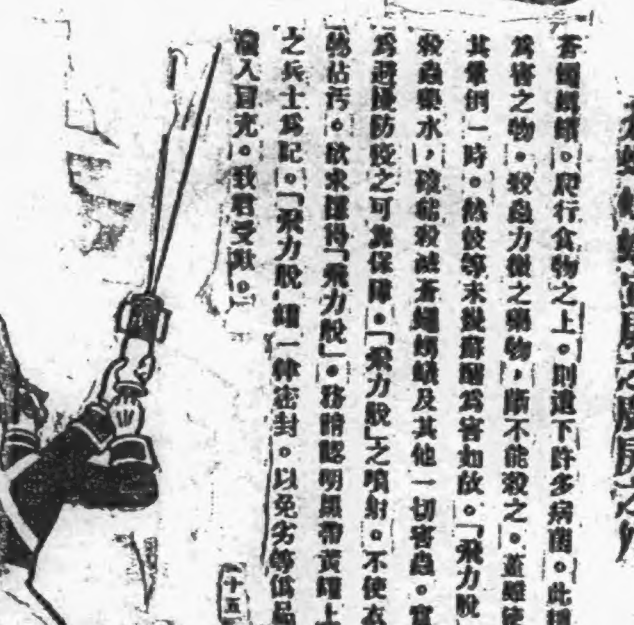 蒼蠅螞蟻。爬行食物之上。則遺下許多病菌。此種
爲害之物。殺蟲力微之藥物，斷不能殺之。並雖使
其暈倒一時。然彼等未幾蘇醒爲害如故。「飛力脫
殺蟲藥水」，確能殺滅蒼蠅螞蟻及其他一切害蟲。實
爲避疫防疫之可靠保障。「飛力脫」之噴射。不使衣
物沾汚。欲求購得「飛力脫」。務請認明黑帶黃罐上
之兵士爲記。「飛力脫」罐一律密封。以免劣等僞品
混入冒充。致君受欺。
十五